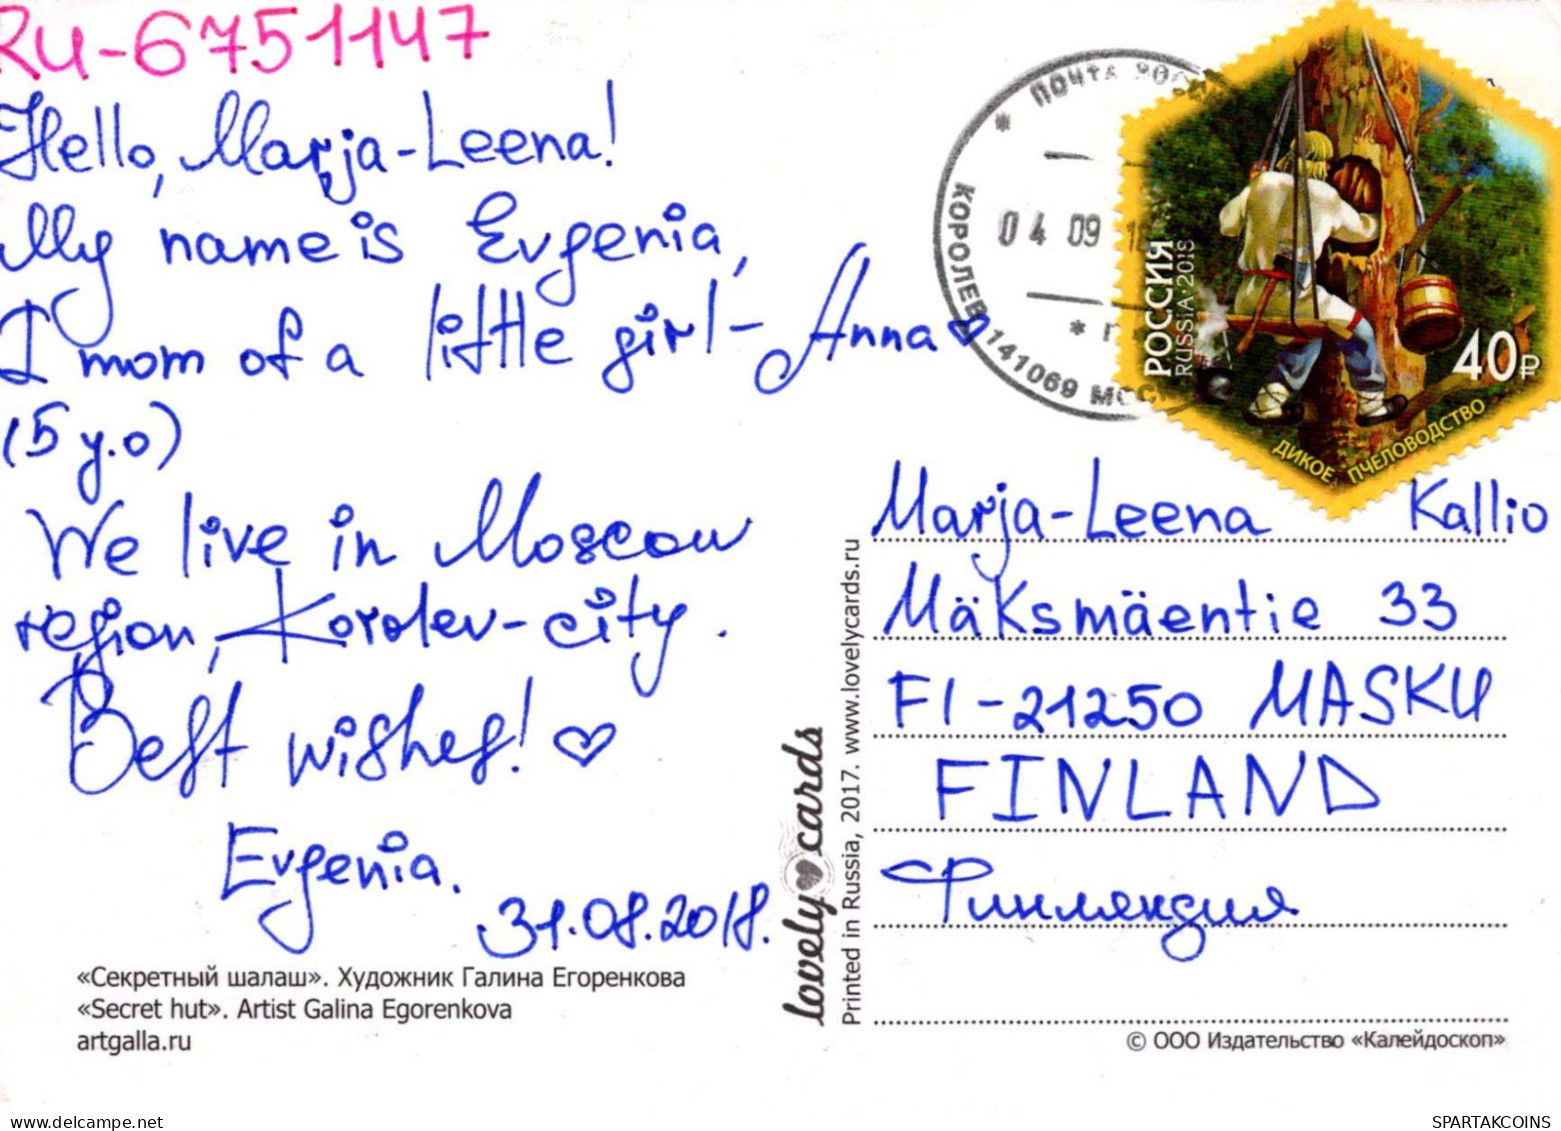 RU-6751147
Hello, Marja-Leena!
My name is Evgenia,
I mom of a little girl - Anna♡
(5 y.o)
We live in Moscow
region, Korolev-city.
Best wishes! ♡
Evgenia.
31.08.2018.
«Секретный шалаш». Художник Галина Егоренкова
«Secret hut». Artist Galina Egorenkova
artgalla.ru
lovely cards
Printed in Russia, 2017. www.lovelycards.ru
* ПОЧТА
04 09
КОРОЛЕВ 141069
РОССИЯ
RUSSIA 2018
40₽
ДИКОЕ ПЧЕЛОВОДСТВО
Marja-Leena Kallio
Mäksmäentie 33
FI-21250 MASKU
FINLAND
Финляндия
© ООО Издательство «Калейдоскоп»
SPARTAKCOINS